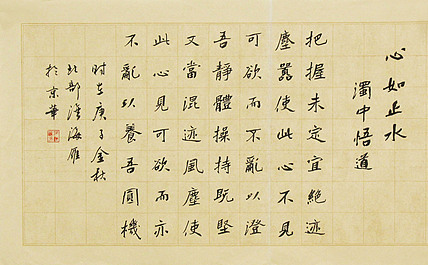 心如止水
濁中悟道
把握未定宜絶迹
塵囂使此心不見
可欲而不亂以澄
吾靜體操持既堅
又當混迹風塵使
此心見可欲而亦
不亂以養吾圓機
時在庚子金秋
北部海雁
於京華